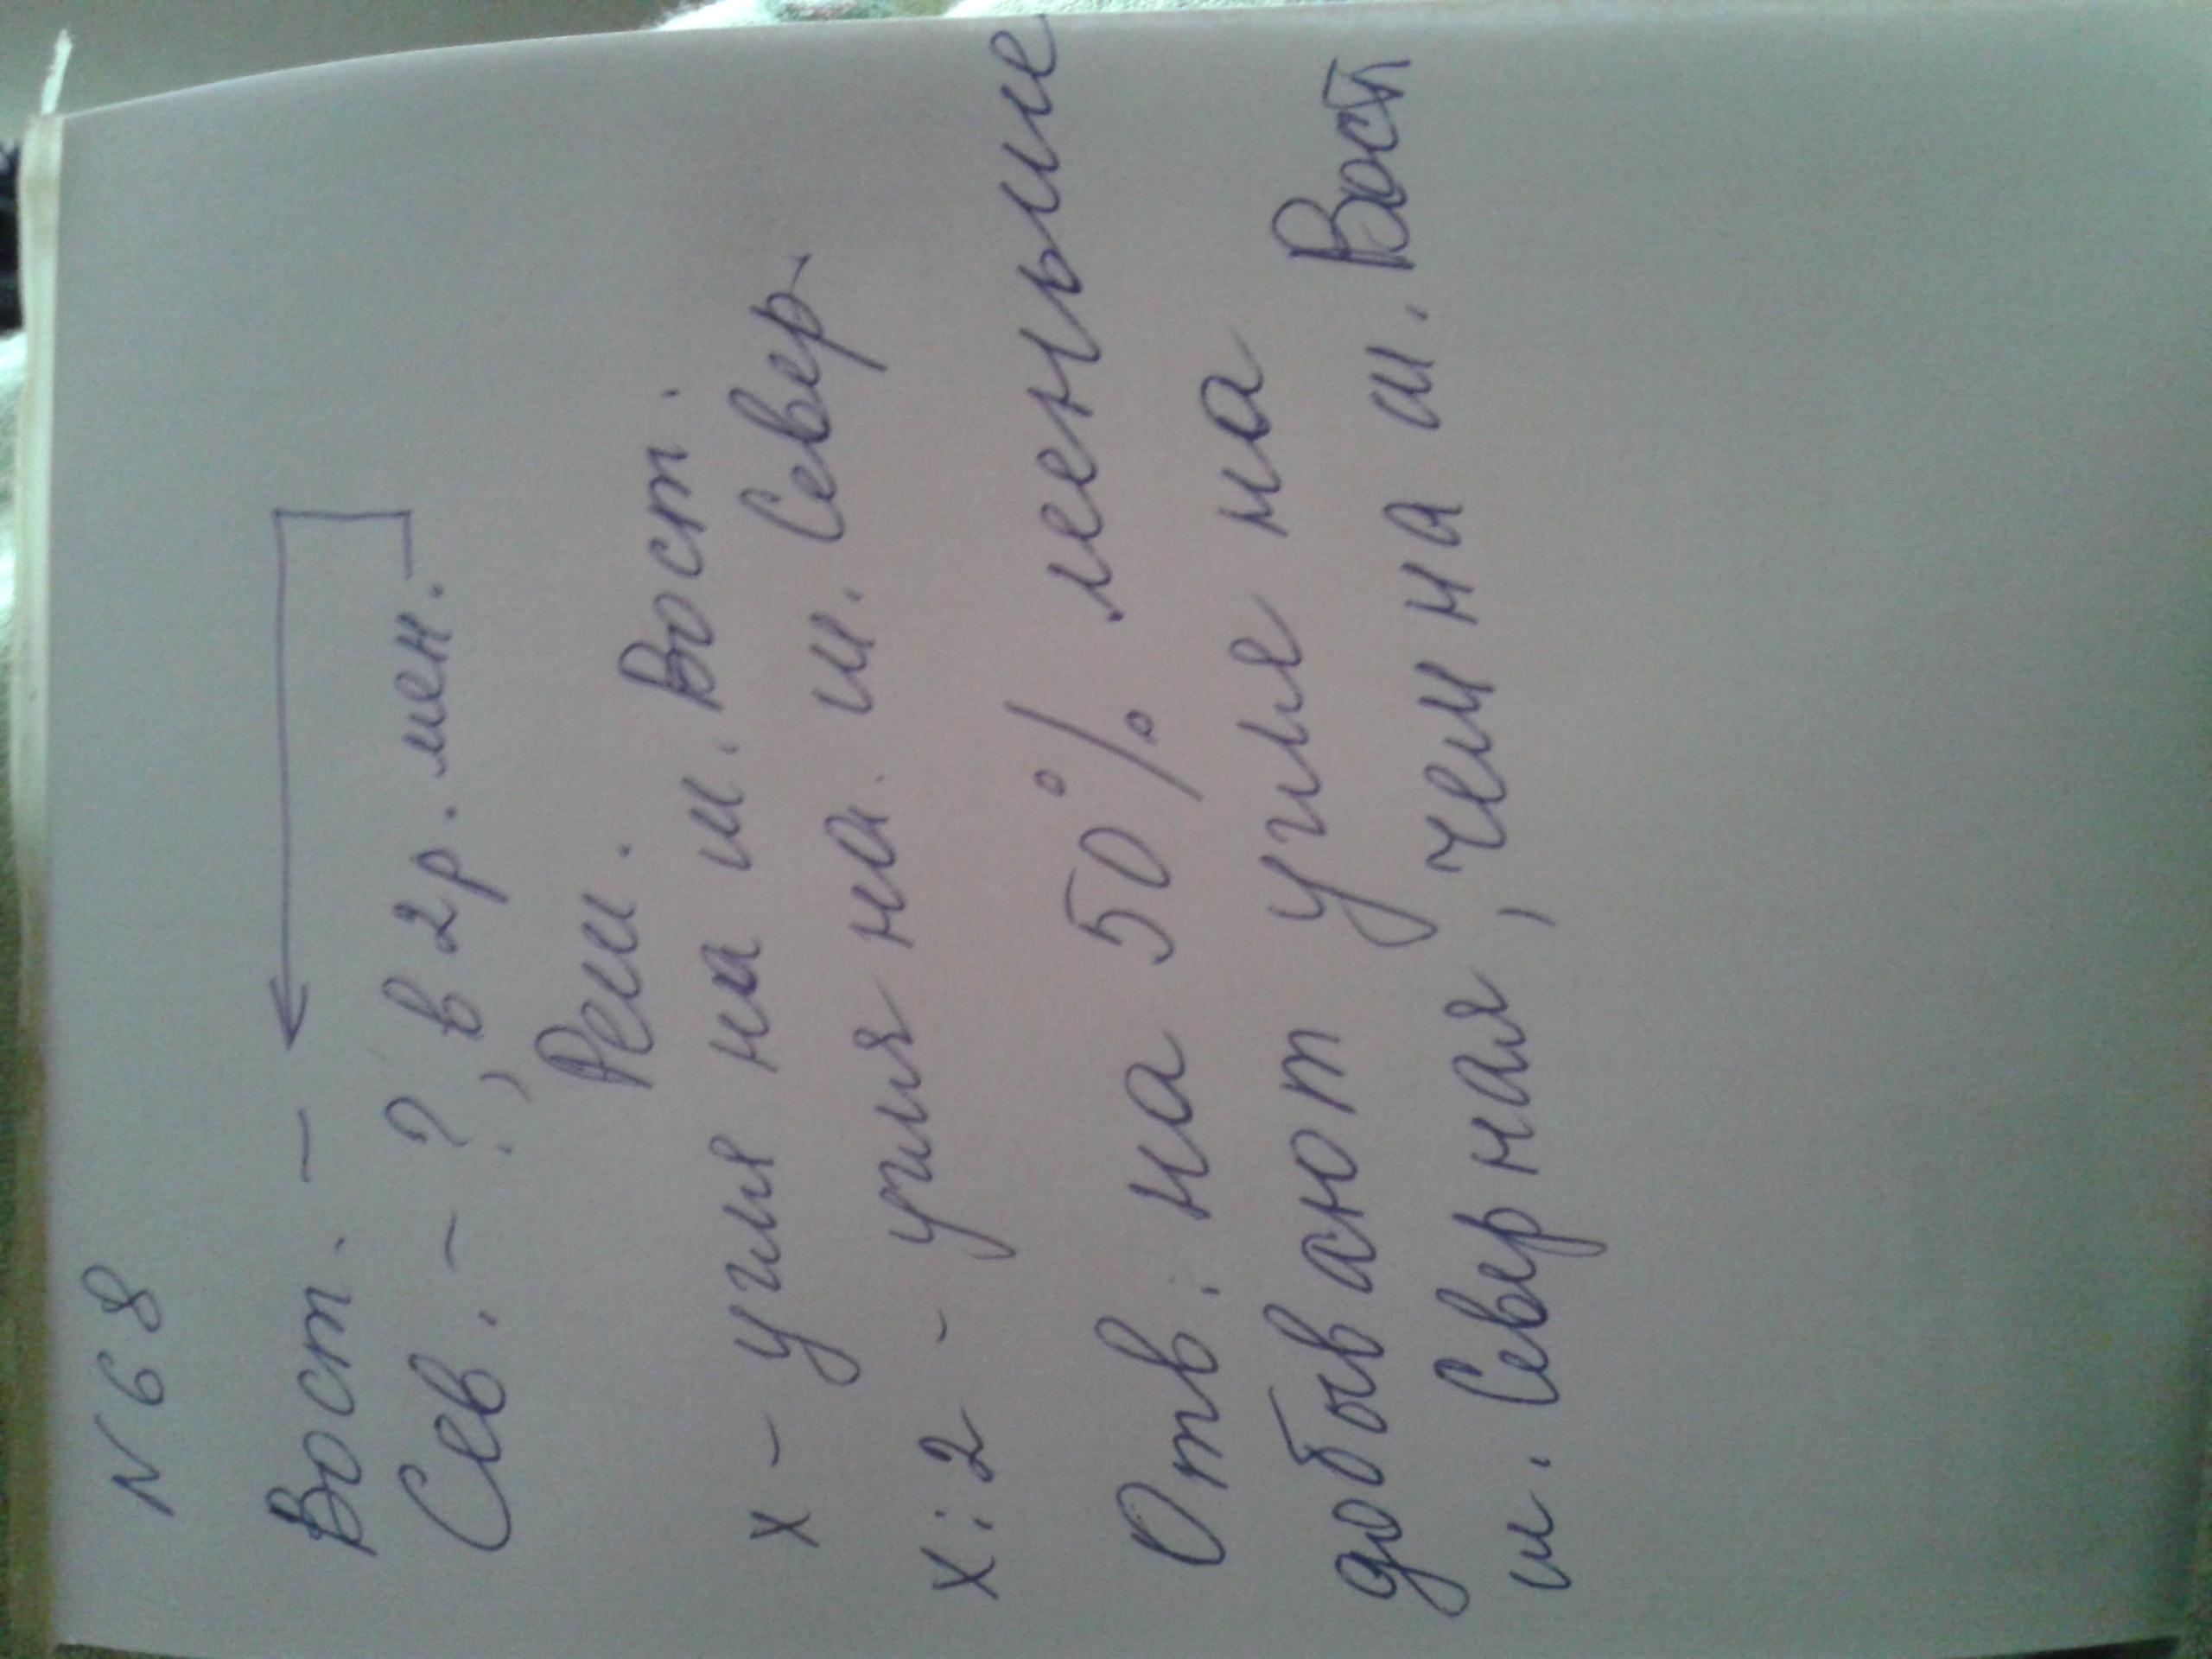 N 68
Вост. -
Сев. - ?, в 2 р. мен.
Реш.
х - угля на ш. Вост.
х : 2 - угля на ш. Север
Отв : на 50 % меньше
добывают угля на
ш. Северная, чем на ш. Вост